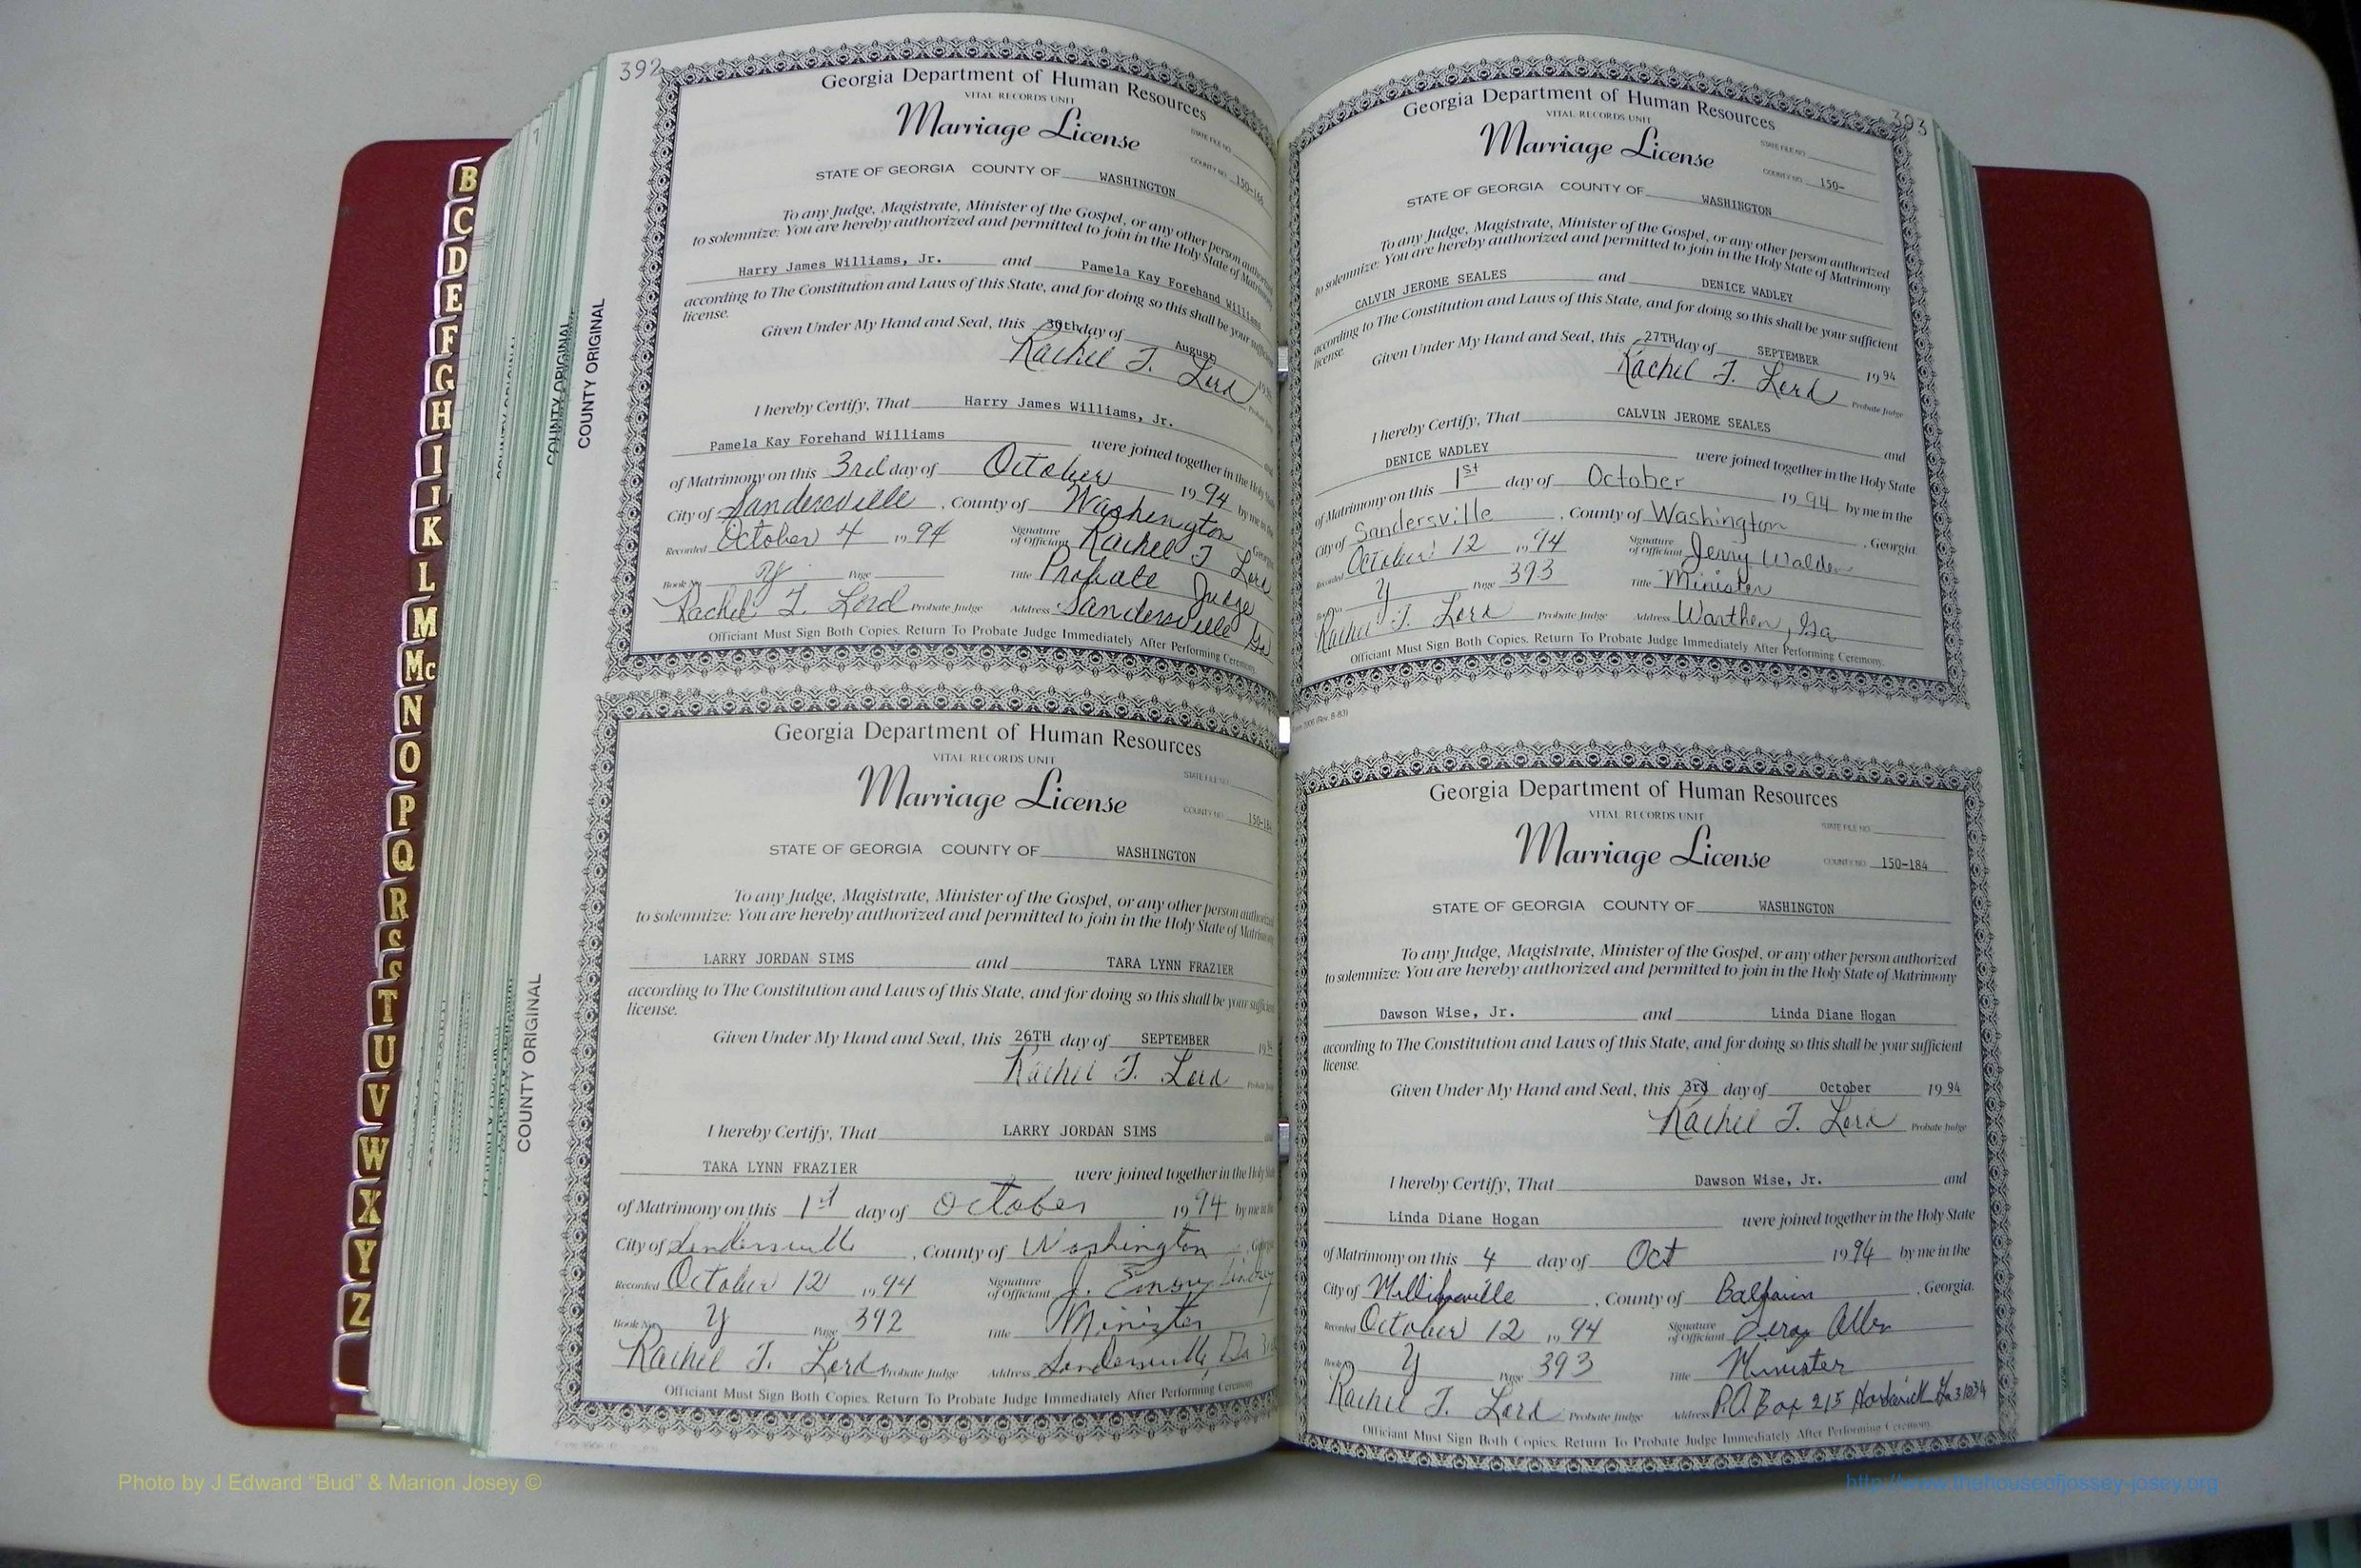 392
Georgia Department of Human Resources
VITAL RECORDS UNIT
Marriage License
STATE FILE NO.
COUNTY NO.
STATE OF GEORGIA COUNTY OF WASHINGTON
To any Judge, Magistrate, Minister of the Gospel, or any other person authorized
to solemnize: You are hereby authorized and permitted to join in the Holy State of Matrimony
Harry James Williams, Jr. and Pamela Kay Forehand Williams
according to The Constitution and Laws of this State, and for doing so this shall be your sufficient
license.
Given Under My Hand and Seal, this 30th day of August
Rachel T. Lord
I hereby Certify, That Harry James Williams, Jr. and
Pamela Kay Forehand Williams were joined together in the Holy State
of Matrimony on this 3rd day of October 1994 by me in the
City of Sandersville, County of Washington Georgia
Recorded October 4 1994 Signature of Officiant Rachel T Lord
Book No. Y Page Title Probate Judge
Rachel T. Lord Probate Judge Address Sandersville Ga
Officiant Must Sign Both Copies. Return To Probate Judge Immediately After Performing Ceremony
COUNTY ORIGINAL
Georgia Department of Human Resources
VITAL RECORDS UNIT
Marriage License
STATE FILE NO.
COUNTY NO.
STATE OF GEORGIA COUNTY OF WASHINGTON
To any Judge, Magistrate, Minister of the Gospel, or any other person authorized
to solemnize: You are hereby authorized and permitted to join in the Holy State of Matrimony
LARRY JORDAN SIMS and TARA LYNN FRAZIER
according to The Constitution and Laws of this State, and for doing so this shall be your sufficient
license.
Given Under My Hand and Seal, this 26TH day of SEPTEMBER
Rachel T. Lord
I hereby Certify, That LARRY JORDAN SIMS and
TARA LYNN FRAZIER were joined together in the Holy State
of Matrimony on this 1st day of October 1994 by me in the
City of Sandersville, County of Washington, Georgia
Recorded October 12 1994 Signature of Officiant J. Emory Lindsey
Book No. Y Page 392 Title Minister
Rachel T. Lord Probate Judge Address Sandersville, Ga
Officiant Must Sign Both Copies. Return To Probate Judge Immediately After Performing Ceremony
COUNTY ORIGINAL
393
Georgia Department of Human Resources
VITAL RECORDS UNIT
Marriage License
STATE FILE NO.
COUNTY NO. 150-
STATE OF GEORGIA COUNTY OF WASHINGTON
To any Judge, Magistrate, Minister of the Gospel, or any other person authorized
to solemnize: You are hereby authorized and permitted to join in the Holy State of Matrimony
CALVIN JEROME SEALES and DENICE WADLEY
according to The Constitution and Laws of this State, and for doing so this shall be your sufficient
license.
Given Under My Hand and Seal, this 27TH day of SEPTEMBER 1994
Rachel T. Lord Probate Judge
I hereby Certify, That CALVIN JEROME SEALES and
DENICE WADLEY were joined together in the Holy State
of Matrimony on this 1st day of October 1994 by me in the
City of Sandersville, County of Washington, Georgia.
Recorded October 12 1994 Signature of Officiant Jerry Walden
Book No. Y Page 393 Title Minister
Rachel T. Lord Probate Judge Address Warthen, Ga
Officiant Must Sign Both Copies. Return To Probate Judge Immediately After Performing Ceremony.
Georgia Department of Human Resources
VITAL RECORDS UNIT
Marriage License
STATE FILE NO.
COUNTY NO. 150-184
STATE OF GEORGIA COUNTY OF WASHINGTON
To any Judge, Magistrate, Minister of the Gospel, or any other person authorized
to solemnize: You are hereby authorized and permitted to join in the Holy State of Matrimony
Dawson Wise, Jr. and Linda Diane Hogan
according to The Constitution and Laws of this State, and for doing so this shall be your sufficient
license.
Given Under My Hand and Seal, this 3rd day of October 1994
Rachel T. Lord Probate Judge
I hereby Certify, That Dawson Wise, Jr. and
Linda Diane Hogan were joined together in the Holy State
of Matrimony on this 4 day of Oct 1994 by me in the
City of Milledgeville, County of Baldwin, Georgia.
Recorded October 12 1994 Signature of Officiant Leroy Allen
Book No. Y Page 393 Title Minister
Rachel T. Lord Probate Judge Address P.O Box 215 Hardwick Ga 31034
Officiant Must Sign Both Copies. Return To Probate Judge Immediately After Performing Ceremony.
B
C
D
E
F
G
H
I
J
K
L
M
Mc
N
O
P
Q
R
S
T
U
V
W
X
Y
Z
Photo by J Edward “Bud” & Marion Josey ©
http://www.thehouseofjossey-josey.org